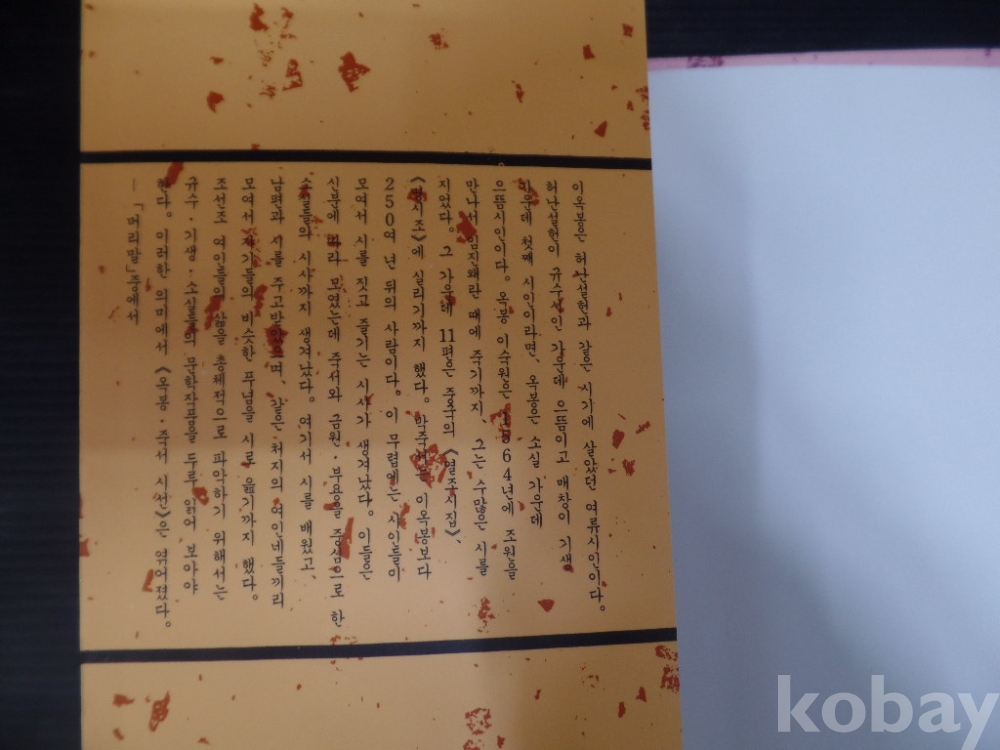 이옥봉은 허난설헌과 같은 시기에 살았던 여류시인이다.
허난설헌이 규수시인 가운데 으뜸이고 매창이 기생
가운데 첫째 시인이라면, 옥봉은 소실 가운데
으뜸시인이다. 옥봉 이숙원은 1564년에 조원을
만나서 임진왜란 때에 죽기까지, 그는 수많은 시를
지었다. 그 가운데 11편은 중국의 《열조시집》,
실리기까지 했다. 박죽서는 이옥봉보다
250여 년 뒤의 사람이다. 이 무렵에는 시인들이
모여서 시를 짓고 즐기는 시사가 생겨났다. 이들은
신분에 따라 모였는데 죽서와 금원·부용을 중심으로 한
소실들의 시사까지 생겨났다. 여기서 시를 배웠고,
남편과 시를 주고받았으며, 같은 처지의 여인네들끼리
모여서 자기들의 비슷한 푸념을 시로 읊기까지 했다.
조선조 여인들의 삶을 총체적으로 파악하기 위해서는
규수·기생·소실들의 문학작품을 두루 읽어 보아야
한다. 이러한 의미에서 《옥봉·죽서 시선》은 엮어졌다.
—「머리말」중에서
kobay